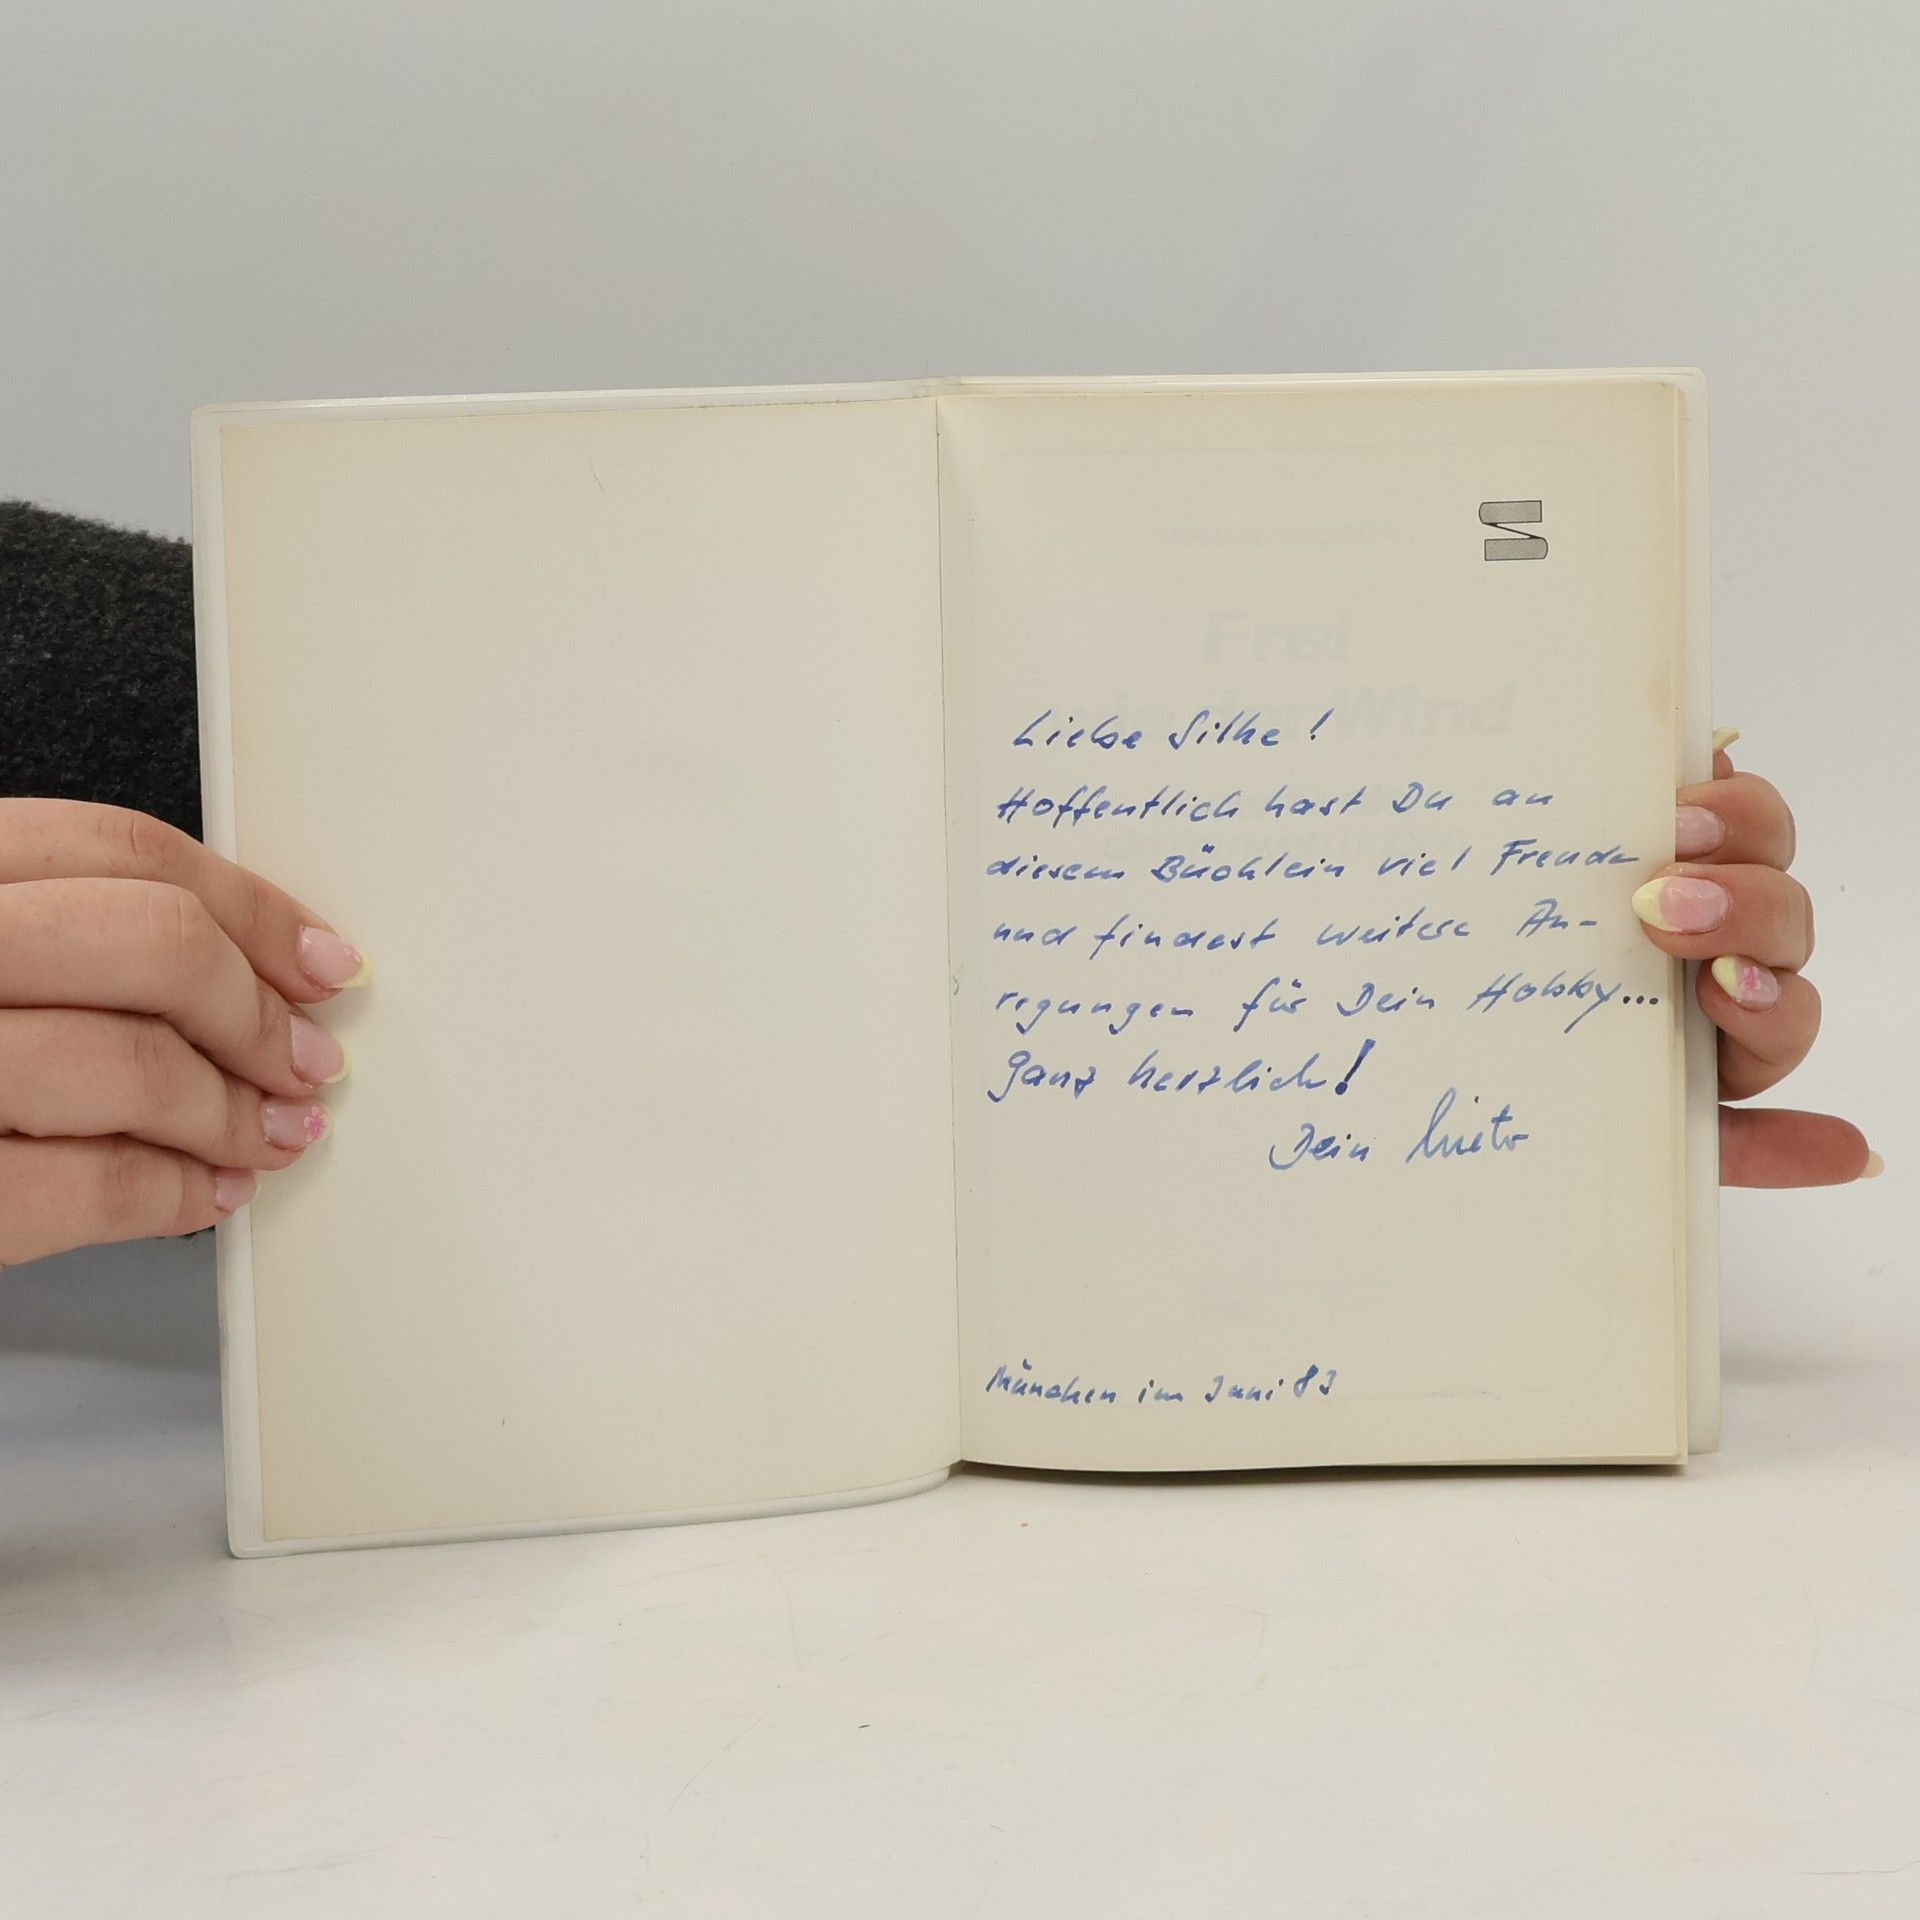 Frei
wie der Wind
Liebe Silke!
Hoffentlich hast Du an
diesem Büchlein viel Freude
und findest weitere An-
regungen für Dein Hobby...
Ganz herzlich!
Dein
München im Juni 83